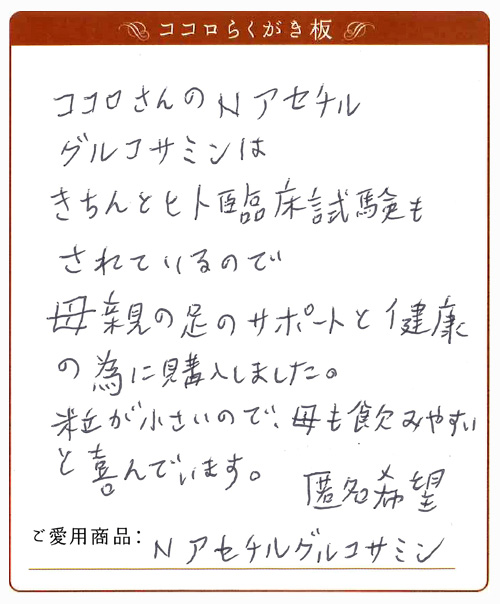 ココロらくがき板
ココロさんのNアセチル
グルコサミンは
きちんとヒト臨床試験も
されているので
母親の足のサポートと健康
の為に購入しました。
粒が小さいので、母も飲みやすい
と喜んでいます。
匿名希望
ご愛用商品：
Nアセチルグルコサミン